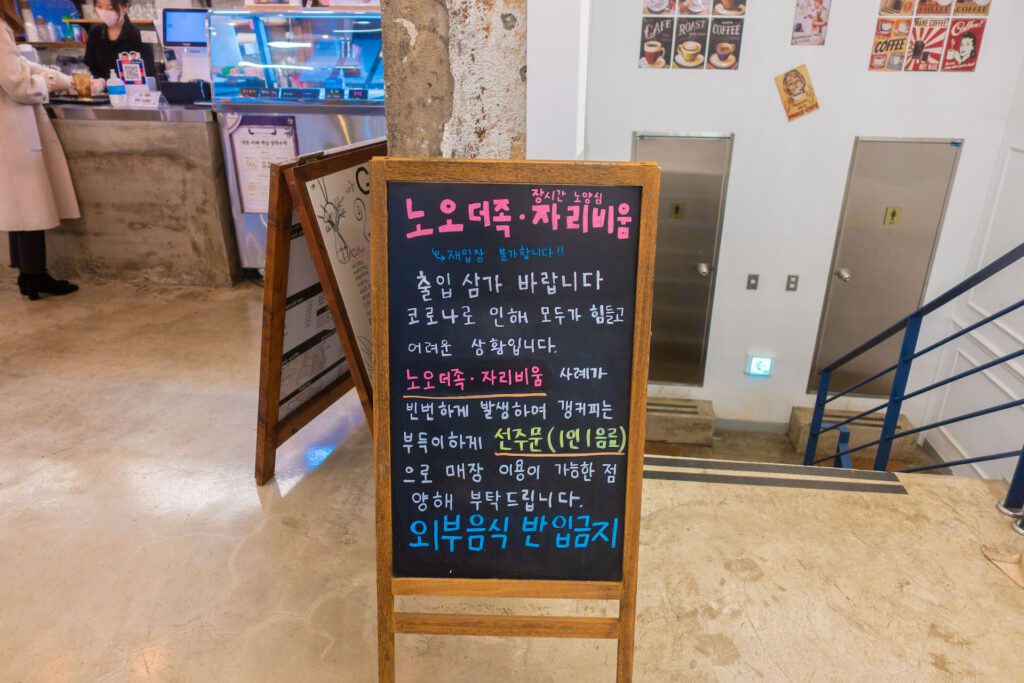 장시간 노양심
노오더족·자리비움
↳재입장 불가합니다!!
출입 삼가 바랍니다
코로나로 인해 모두가 힘들고
어려운 상황입니다.
노오더족·자리비움 사례가
빈번하게 발생하여 갱커피는
부득이하게 선주문(1인1음료)
으로 매장 이용이 가능한 점
양해 부탁드립니다.
외부음식 반입금지
CAFE
ROAST
COFFEE
COFFEE